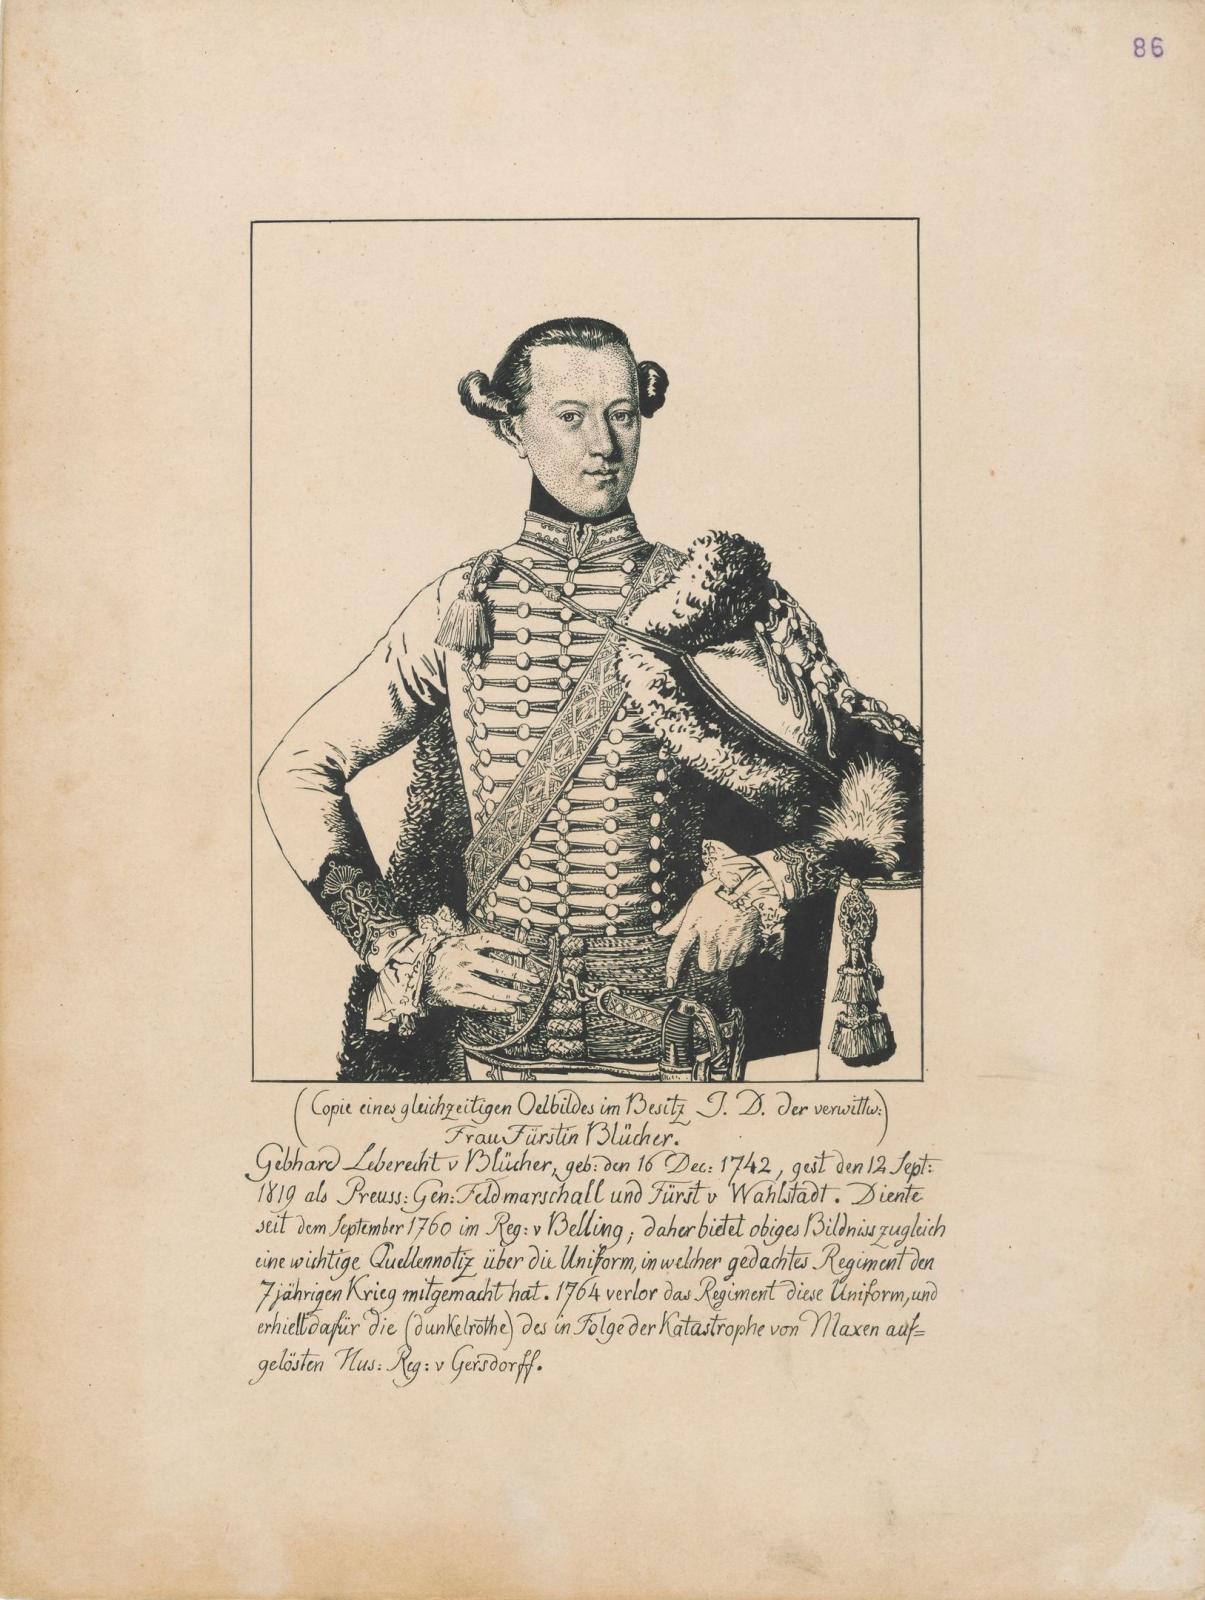 86
(Copie eines gleichzeitigen Oelbildes im Besitz J. D. der verwittw:)
Frau Fürstin Blücher.
Gebhard Leberecht v Blücher, geb: den 16 Dec: 1742, gest den 12 Sept:
1819 als Preuss: Gen: Feldmarschall und Fürst v Wahlstadt. Diente
seit dem September 1760 im Reg: v Belling; daher bietet obiges Bildniss zugleich
eine wichtige Quellennotiz über die Uniform, in welcher gedachtes Regiment den
7jährigen Krieg mitgemacht hat. 1764 verlor das Regiment diese Uniform, und
erhielt dafür die (dunkelrothe) des in Folge der Katastrophe von Maxen auf=
gelösten Hus: Reg: v Gersdorff.